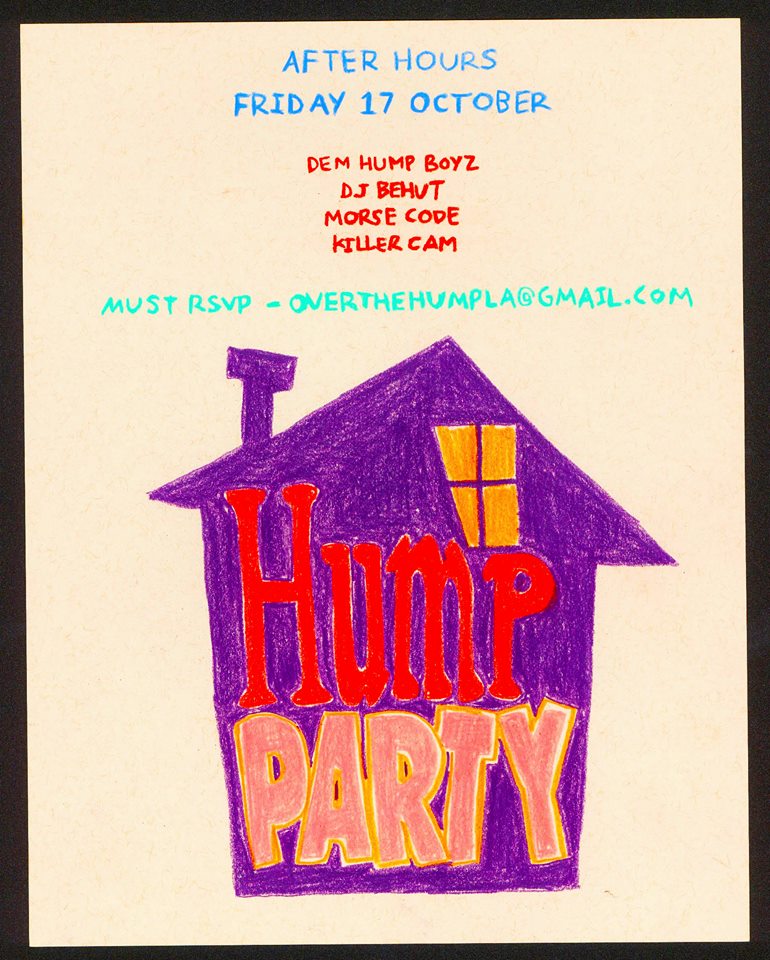 AFTER HOURS
FRIDAY 17 OCTOBER
DEM HUMP BOYZ
DJ BEHUT
MORSE CODE
KILLER CAM
MUST RSVP - OVERTHEHUMPLA@GMAIL.COM
Hump
PARTY